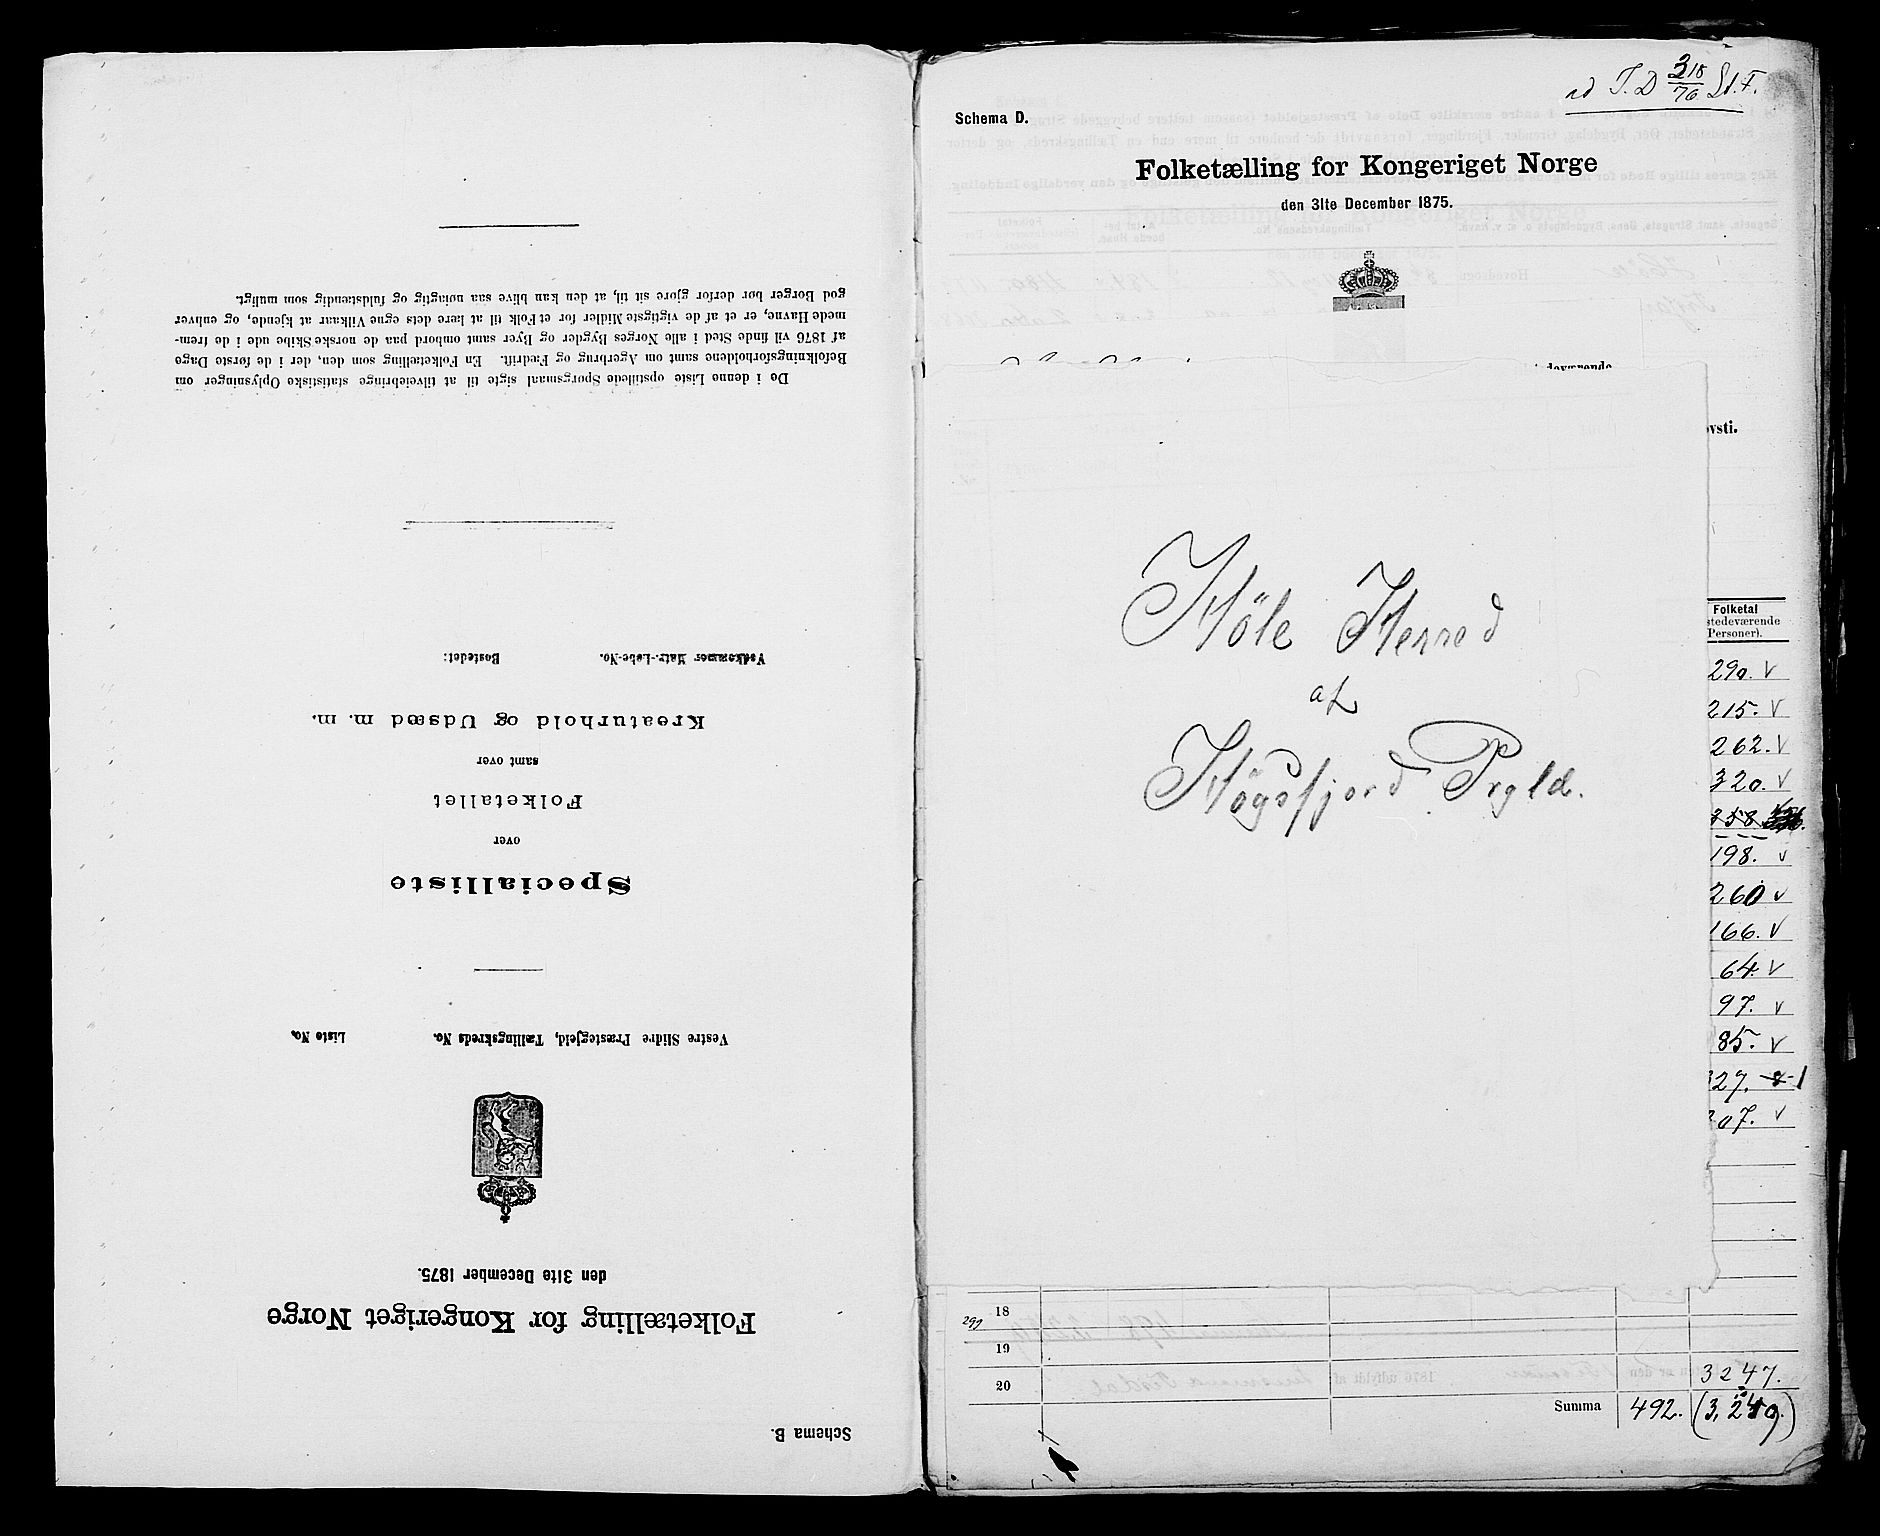 Schema B.
Folketælling for Kongeriget Norge
den 31te December 1875.
Vestre Slidre Præstegjeld, Tællingskreds No. Liste No.
Specialliste
over
Folketallet
samt over
Kreaturhold og Udsæd m. m.
Vedkommer Matr.-Løbe-No. Bostedet:
De i denne Liste opstillede Spørgsmaal sigte til at tilveiebringe statistiske Oplysninger om
Befolkningsforholdene samt om Agerbrug og Fædrift. En Folketælling som den, der i de første Dage
af 1876 vil finde Sted i alle Norges Bygder og Byer samt ombord paa de norske Skibe ude i de frem-
mede Havne, er et af de vigtigste Midler for et Folk til at lære dets egne Vilkaar at kjende, og enhver
god Borger bør derfor gjøre sit til, at den kan blive saa nøiagtig og fuldstændig som muligt.
Schema D.
Folketælling for Kongeriget Norge
den 31te December 1875.
Höle Herred
af
Høgsfjord Prgld.
Folketal
stedeværende
Personer).
290. v
215. v
262. v
320. v
198. v
260 v
166. v
64. v
97. v
85. v
27.
07. v
18
19
20
3247.
Summa 492.